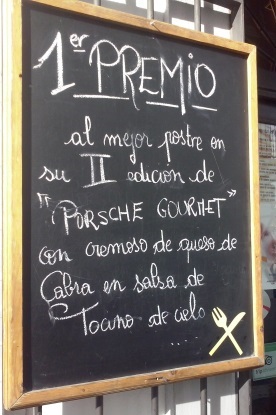 1er PREMIO
al mejor postre en
su II edición de
"PORSCHE GOURMET"
con cremoso de queso de
Cabra en salsa de
Tocino de cielo
.....